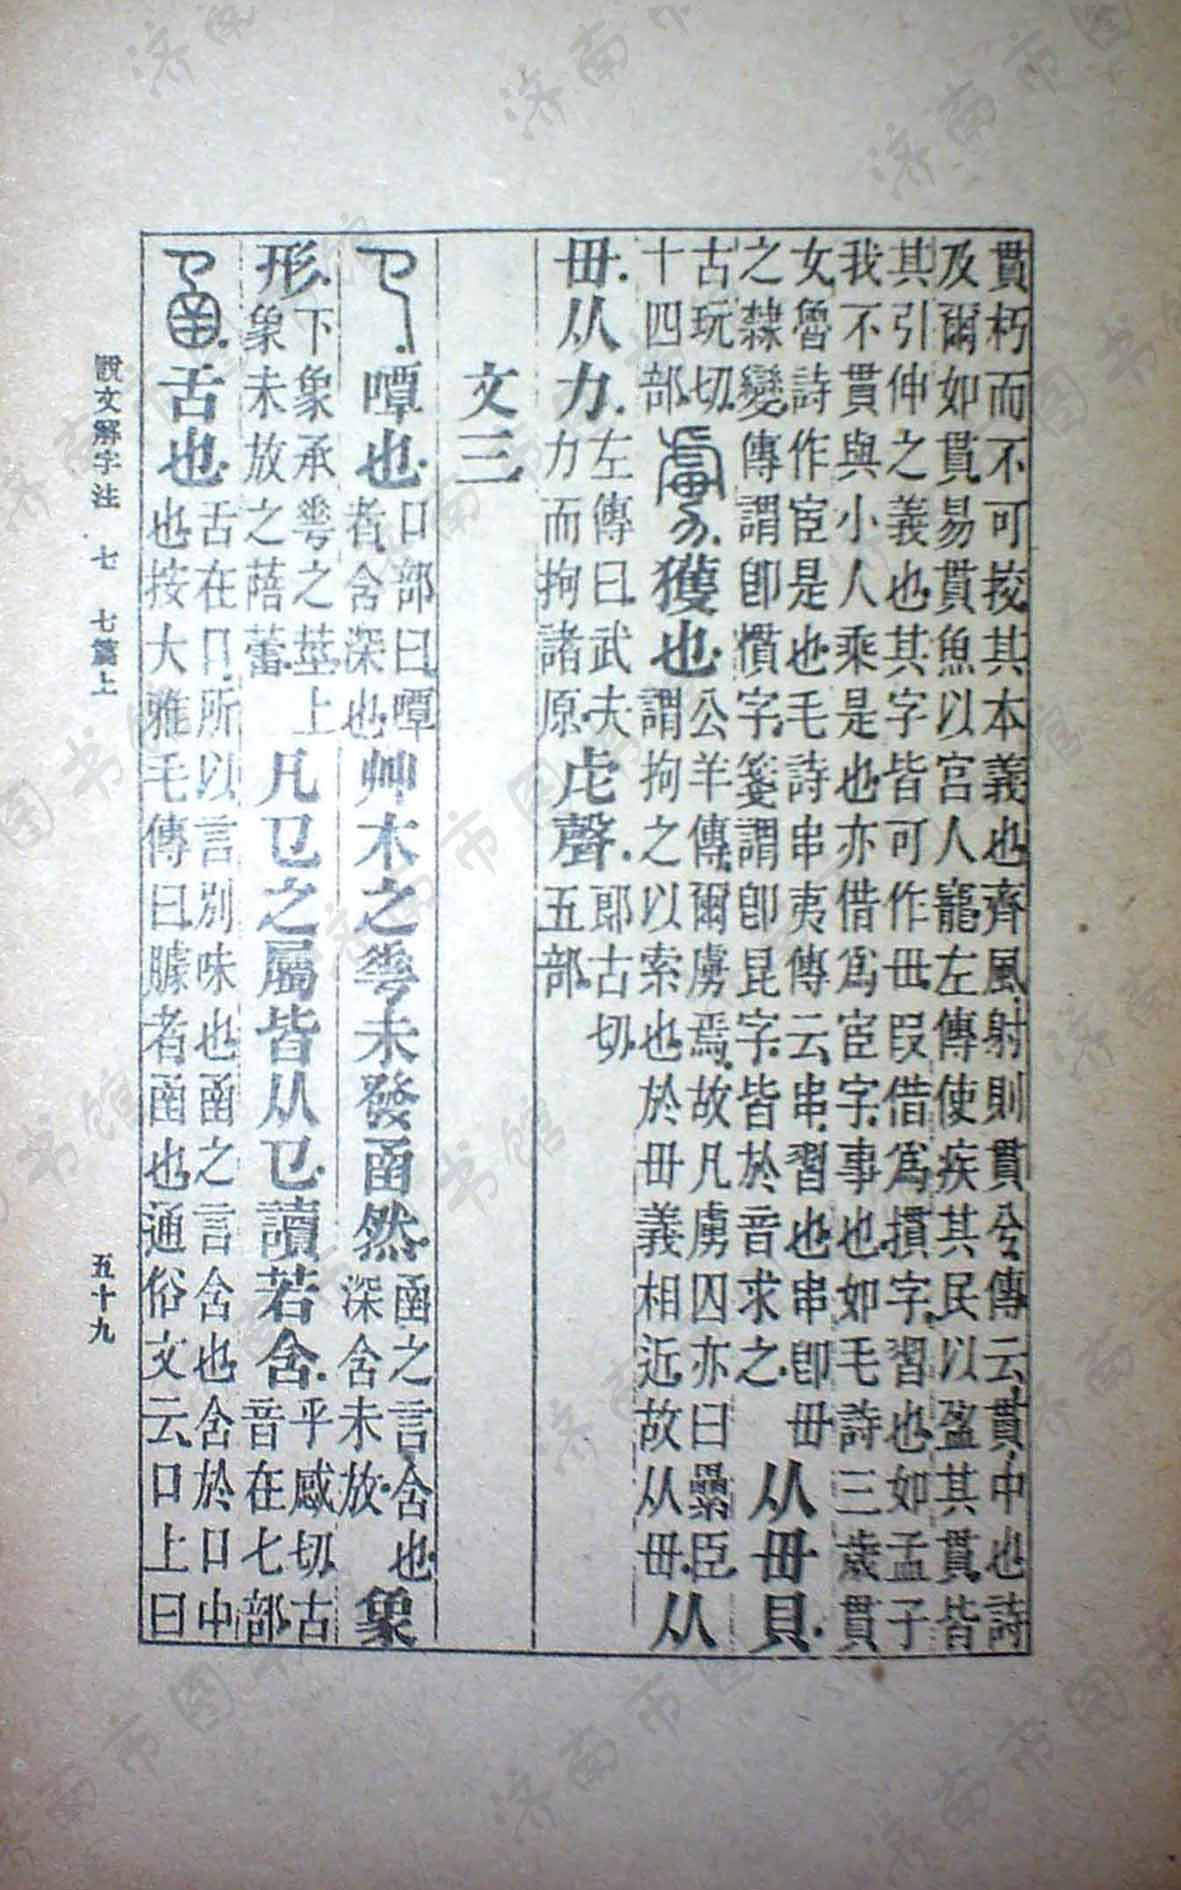 貫朽而不可挍其本義也齊風射則貫兮傳云貫中也詩
及爾如貫易貫魚以宮人寵左傳使疾其民以盈其貫皆
其引伸之義也其字皆可作毌叚借爲摜字習也如孟子
我不貫與小人乘是也亦借爲宦字事也如毛詩三歲貫
女魯詩作宦是也毛詩串夷傳云串習也串卽毌
之隸變傳謂卽慣字箋謂卽昆字皆於音求之从毌貝
古玩切十四部虜獲也公羊傳爾虜焉故凡虜囚亦曰纍臣
謂拘之以索也於毌義相近故从毌从
毌从力左傳曰武夫力而拘諸原虍聲郎古切五部
文三
𢎘嘾也口部曰嘾者含深也艸木之𠌶未發圅然圅之言含也深含未放象
形下象承𠌶之莖上象未放之蓓蕾凡𢎘之屬皆从𢎘讀若含乎感切古音在七部
圅舌也舌在口所以言別味也圅之言含也含於口中
也按大雅毛傳曰臄者圅也通俗文云口上曰
說文解字注 七 七篇上 五十九
济南市图书馆